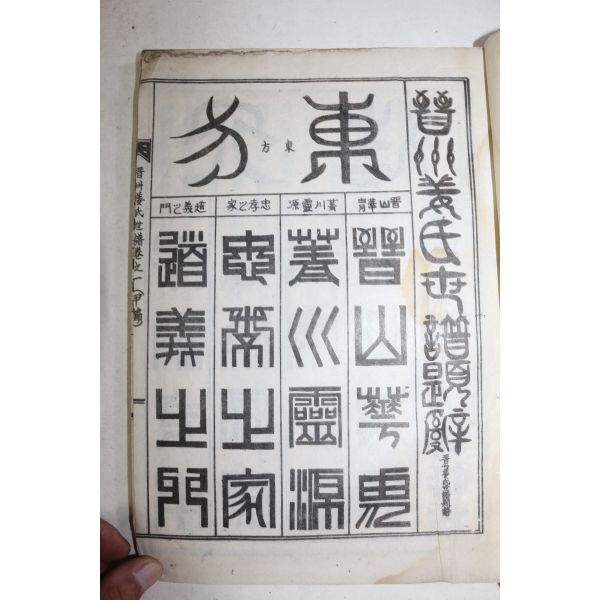 晉州姜氏世譜
東方
東方
晋山華冑
菁川靈源
忠孝之家
道義之門
晉山華冑
菁川靈源
忠孝之家
道義之門
晋州姜氏世譜卷之一(甲編)